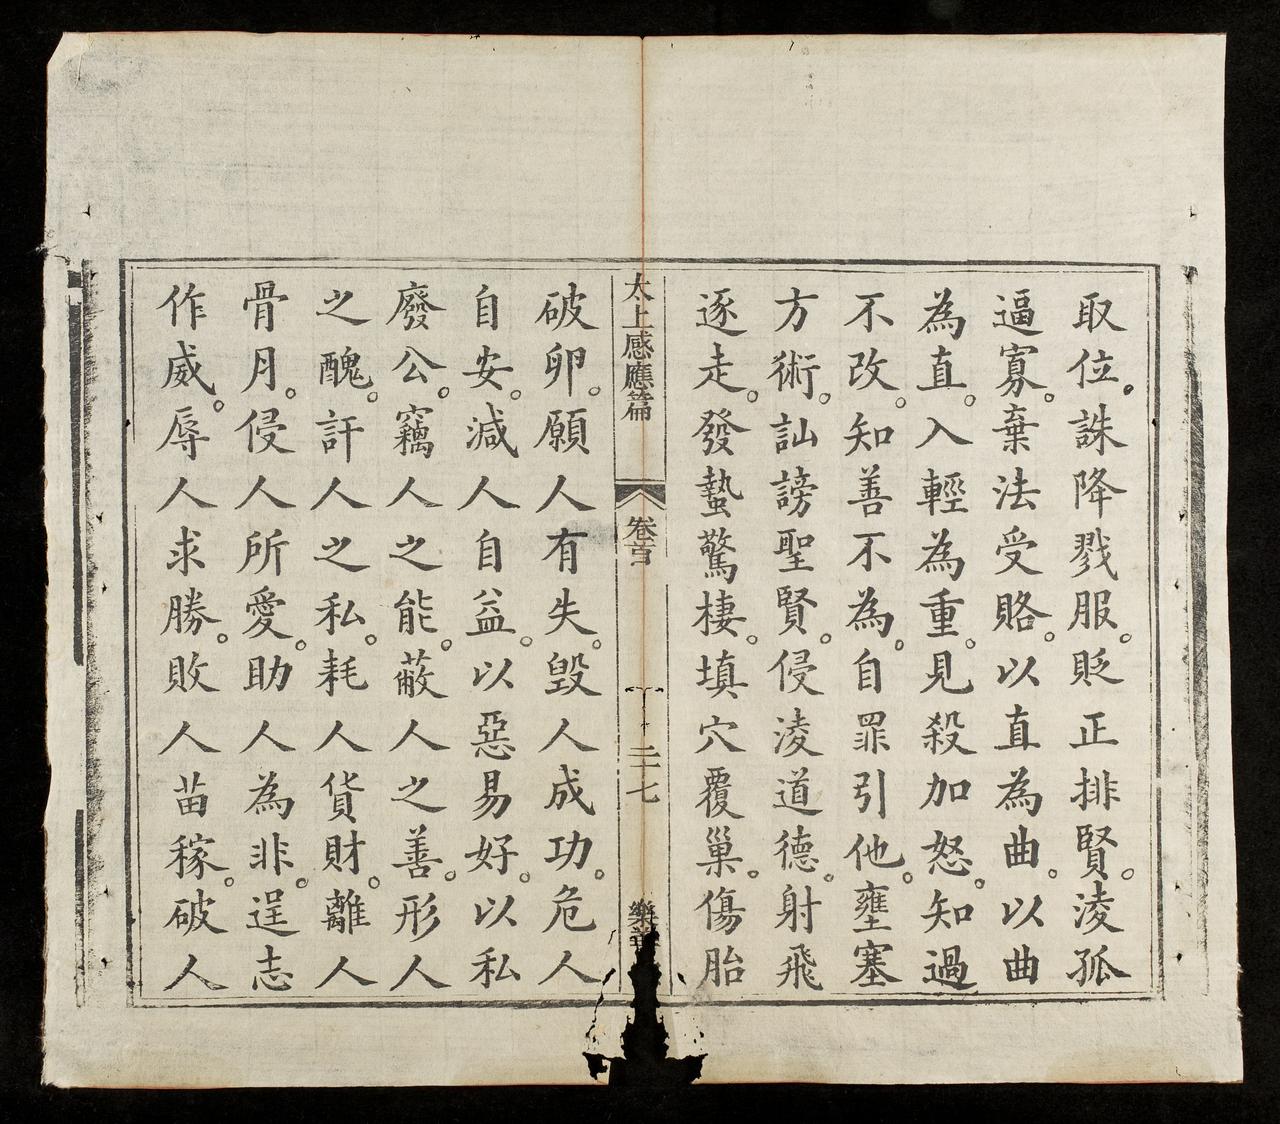 取位。誅降戮服。貶正排賢。淩孤
逼寡。棄法受賂。以直為曲。以曲
為直。入輕為重。見殺加怒。知過
不改。知善不為。自罪引他。壅塞
方術。訕謗聖賢。侵淩道德。射飛
逐走。發蟄驚棲。填穴覆巢。傷胎
太上感應篇
卷首
二十七
樂善
破卵。願人有失。毀人成功。危人
自安。減人自益。以惡易好。以私
廢公。竊人之能。蔽人之善。形人
之醜。訐人之私。耗人貨財。離人
骨月。侵人所愛。助人為非。逞志
作威。辱人求勝。敗人苗稼。破人